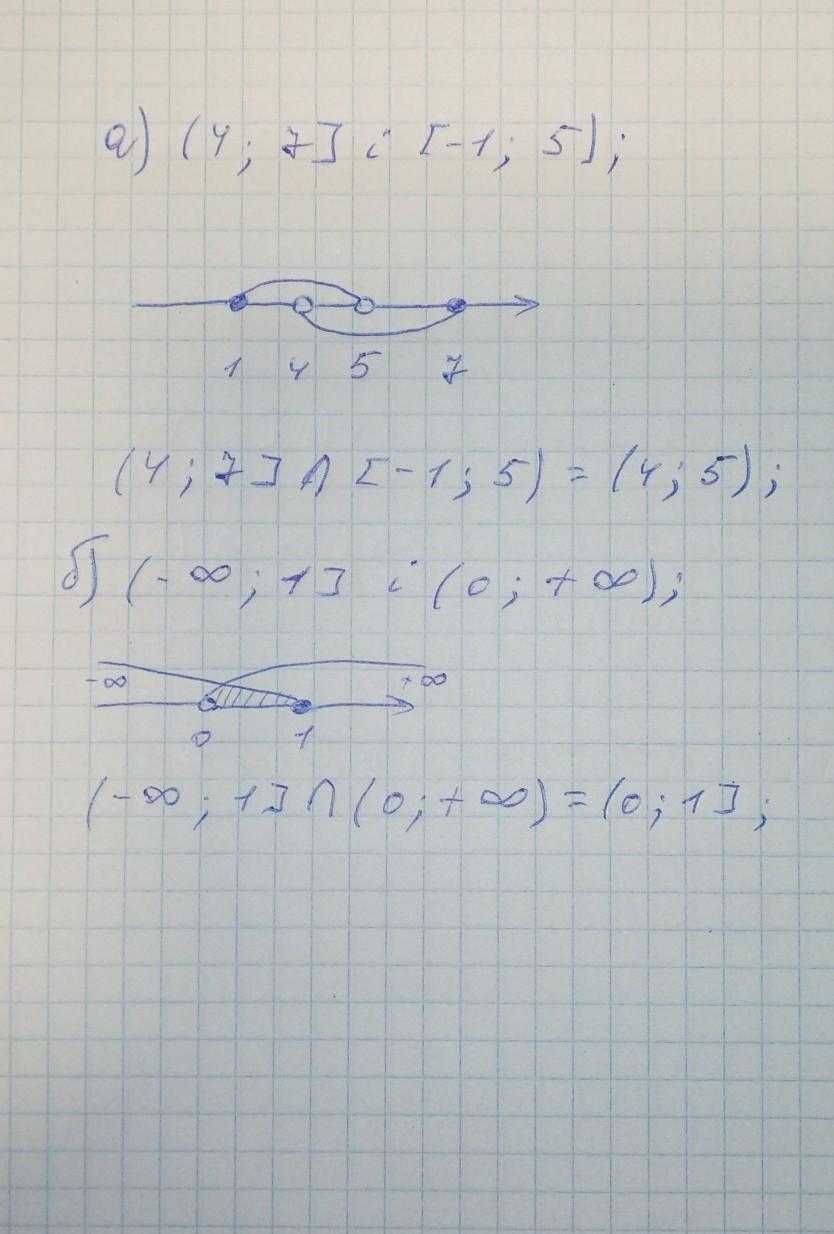 а) (4; 7] і [-1; 5);
1 4 5 7
(4; 7] ∩ [-1; 5) = (4; 5);
б) (-∞; 1] і (0; +∞);
-∞ +∞
0 1
(-∞; 1] ∩ (0; +∞) = (0; 1];